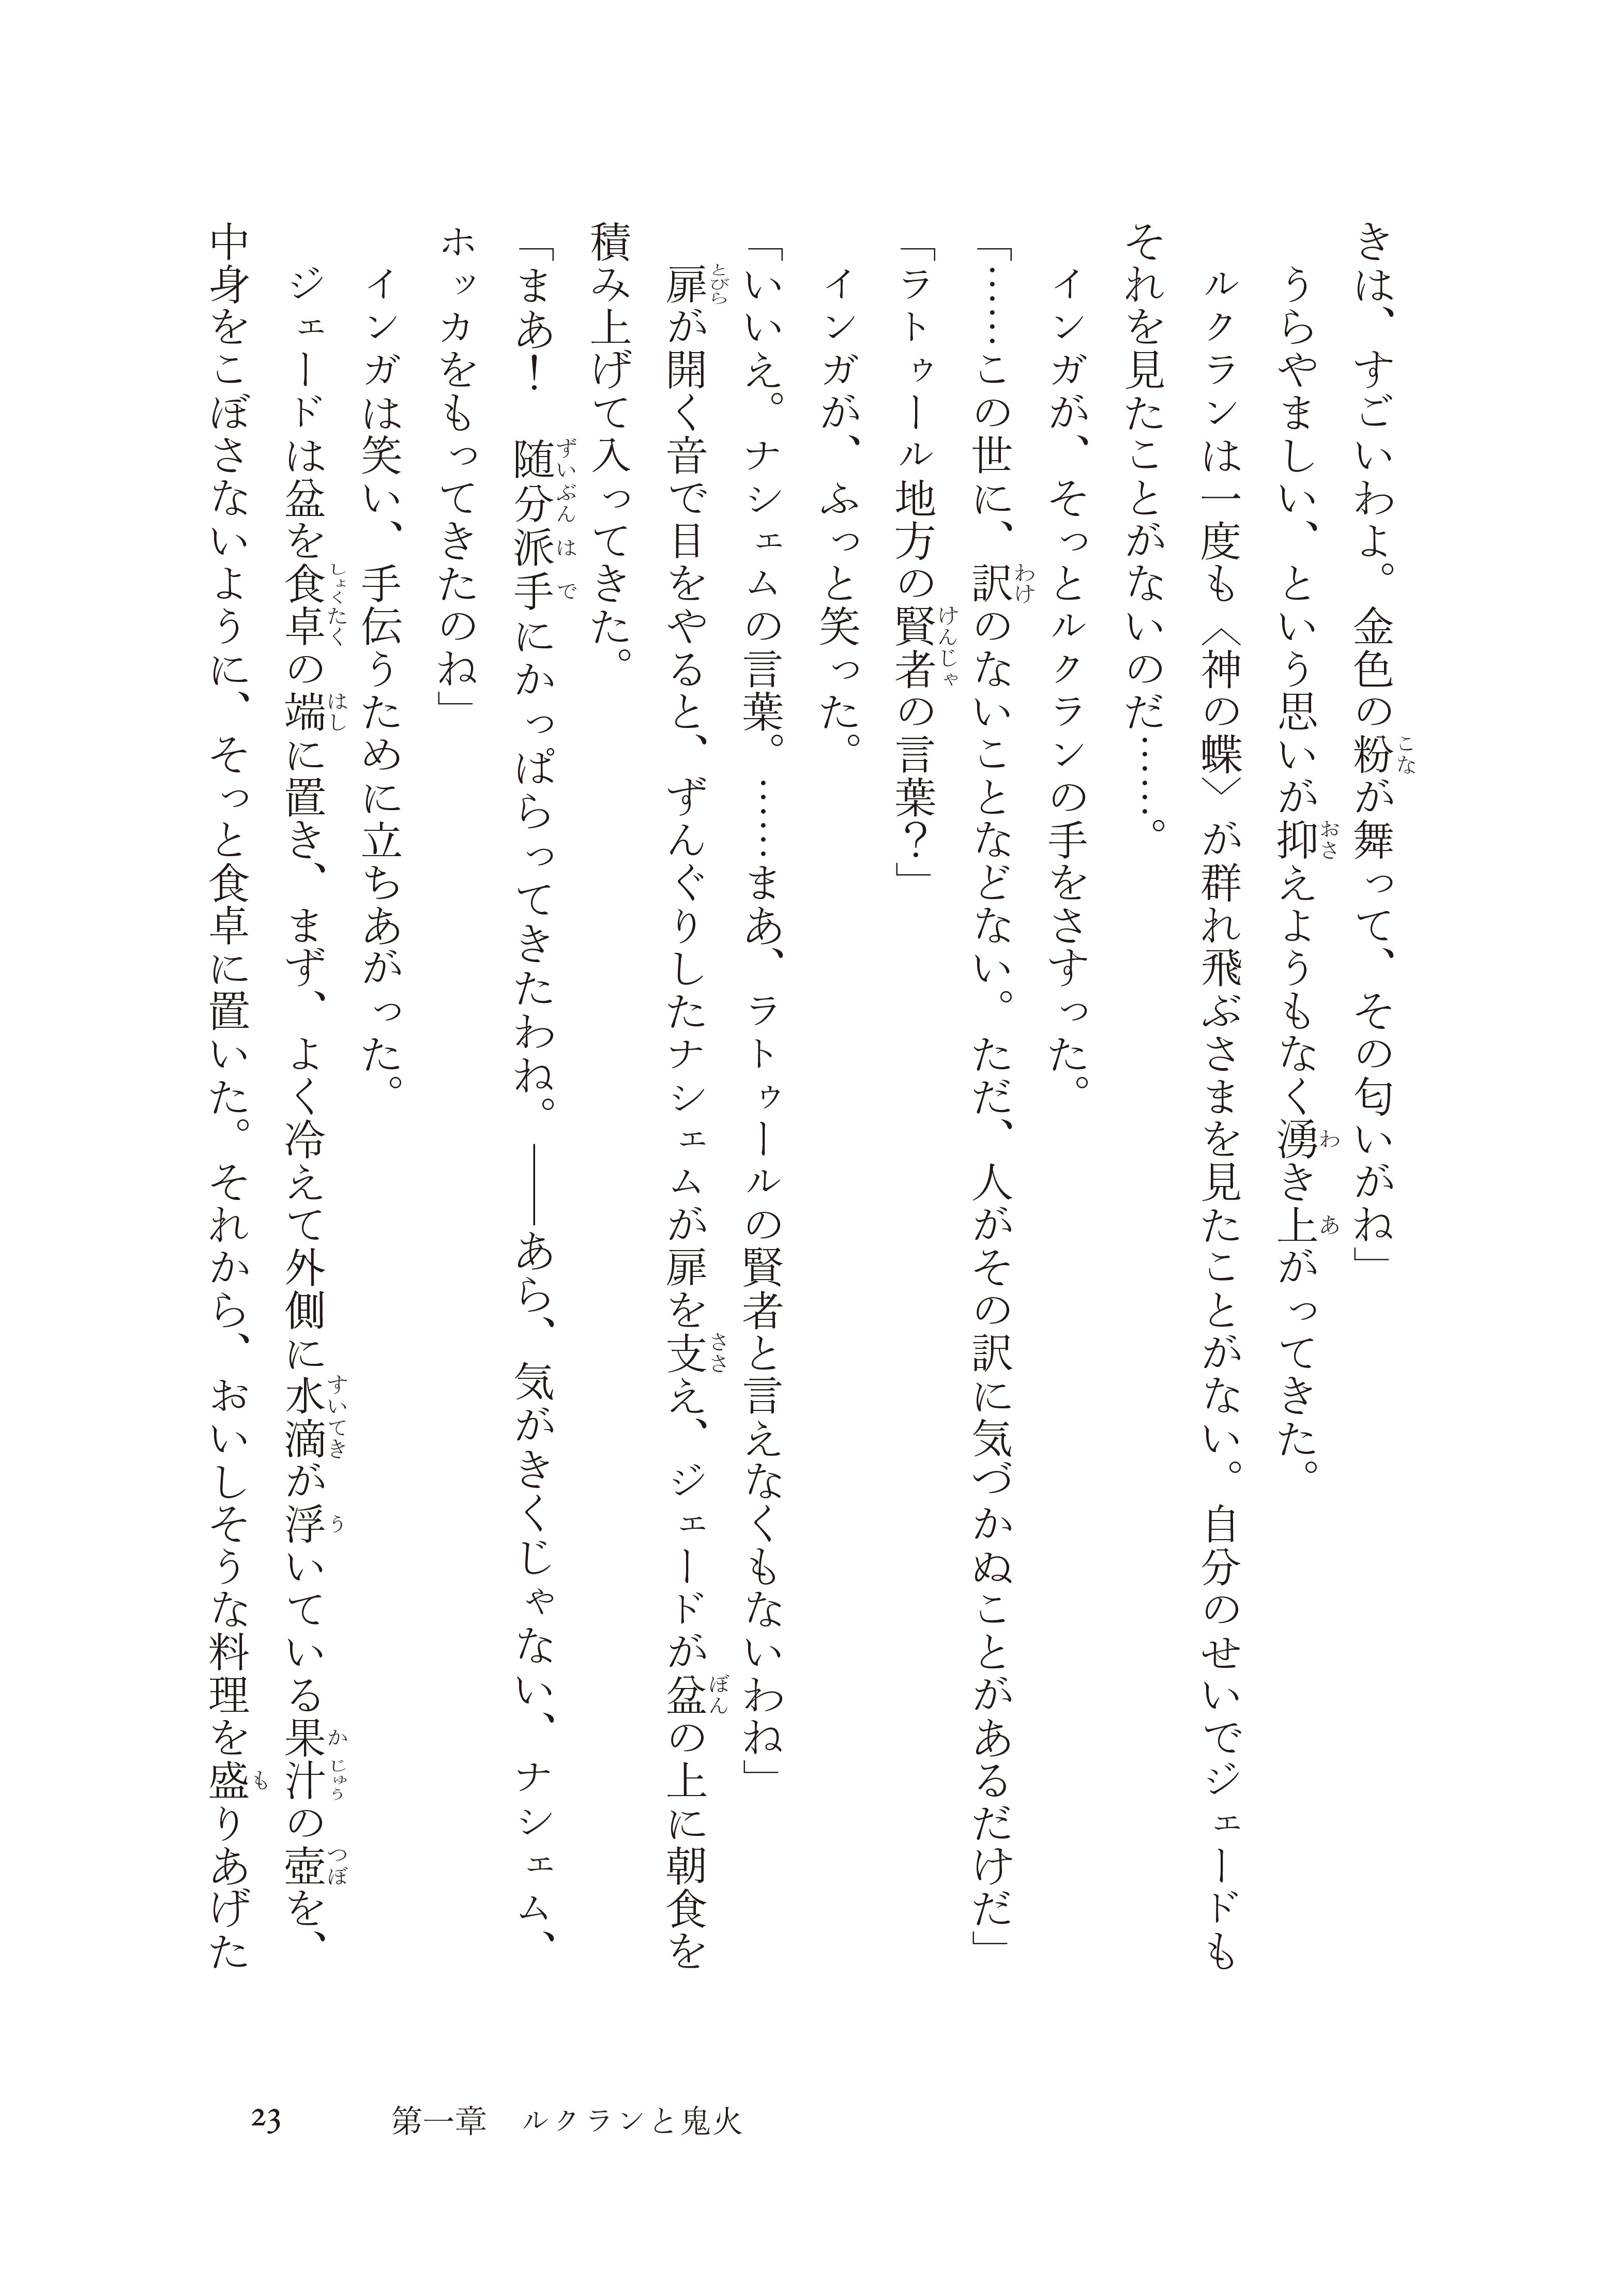 きは、すごいわよ。金色の粉が舞って、その匂いがね」
うらやましい、という思いが抑えようもなく湧き上がってきた。
ルクランは一度も〈神の蝶〉が群れ飛ぶさまを見たことがない。自分のせいでジェードも
それを見たことがないのだ……。
インガが、そっとルクランの手をさすった。
「……この世に、訳のないことなどない。ただ、人がその訳に気づかぬことがあるだけだ」
「ラトゥール地方の賢者の言葉？」
インガが、ふっと笑った。
「いいえ。ナシェムの言葉。……まあ、ラトゥールの賢者と言えなくもないわね」
扉が開く音で目をやると、ずんぐりしたナシェムが扉を支え、ジェードが盆の上に朝食を
積み上げて入ってきた。
「まあ！　随分派手にかっぱらってきたわね。――あら、気がきくじゃない、ナシェム、
ホッカをもってきたのね」
インガは笑い、手伝うために立ちあがった。
ジェードは盆を食卓の端に置き、まず、よく冷えて外側に水滴が浮いている果汁の壺を、
中身をこぼさないように、そっと食卓に置いた。それから、おいしそうな料理を盛りあげた
23　第一章　ルクランと鬼火